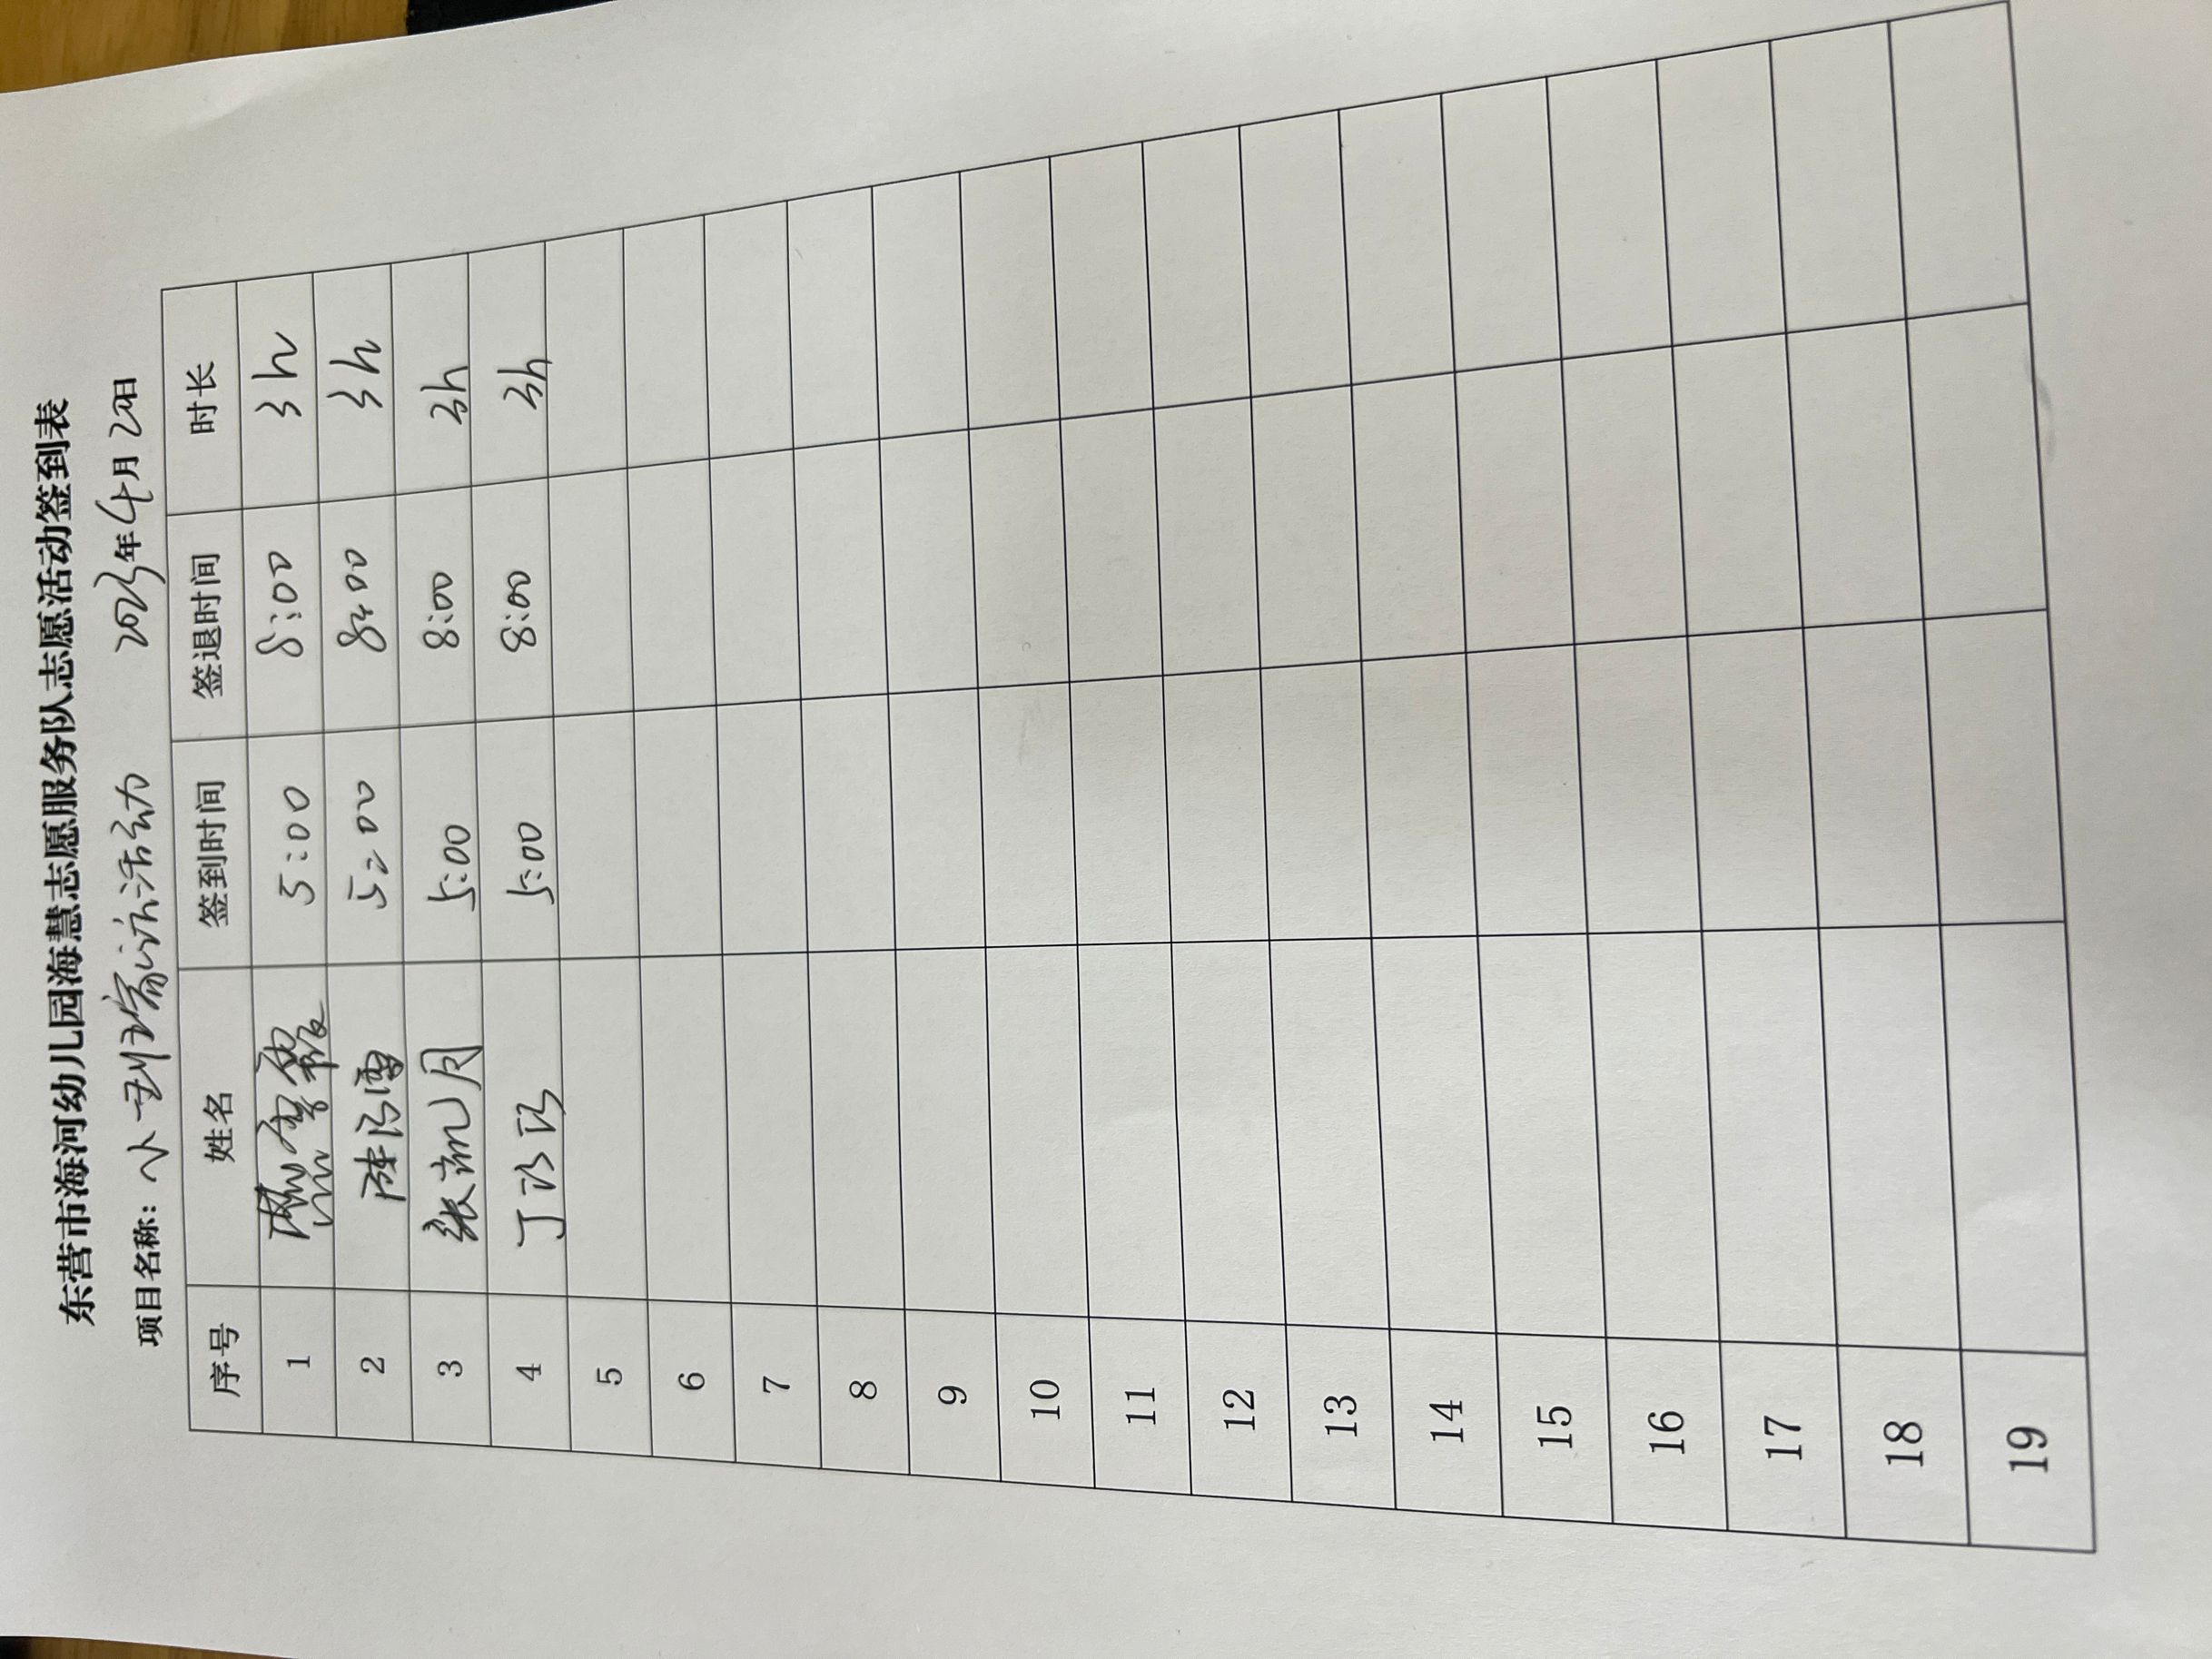 东营市海河幼儿园海慧志愿服务队志愿活动签到表
项目名称: 小 活动 2023年4月20日
序号 姓名 签到时间 签退时间 时长
1 5:00 8:00 3h
2 5:00 8:00 3h
3 张 月 5:00 8:00 3h
4 丁 5:00 8:00 3h
5
6
7
8
9
10
11
12
13
14
15
16
17
18
19